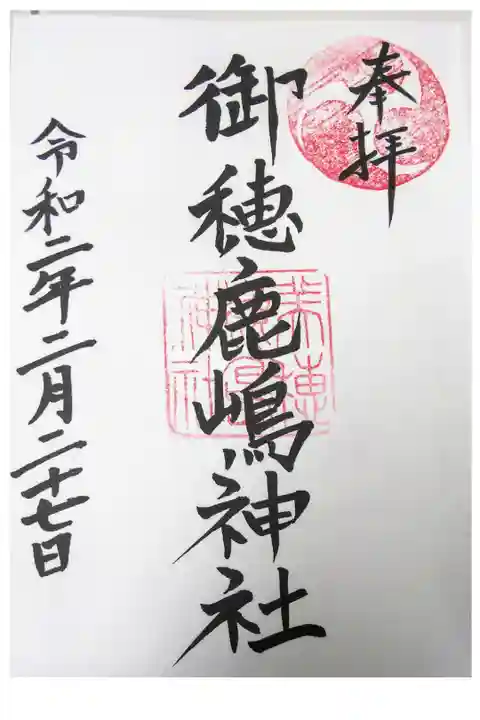 奉拝
御穂鹿嶋神社
令和二年二月二十七日